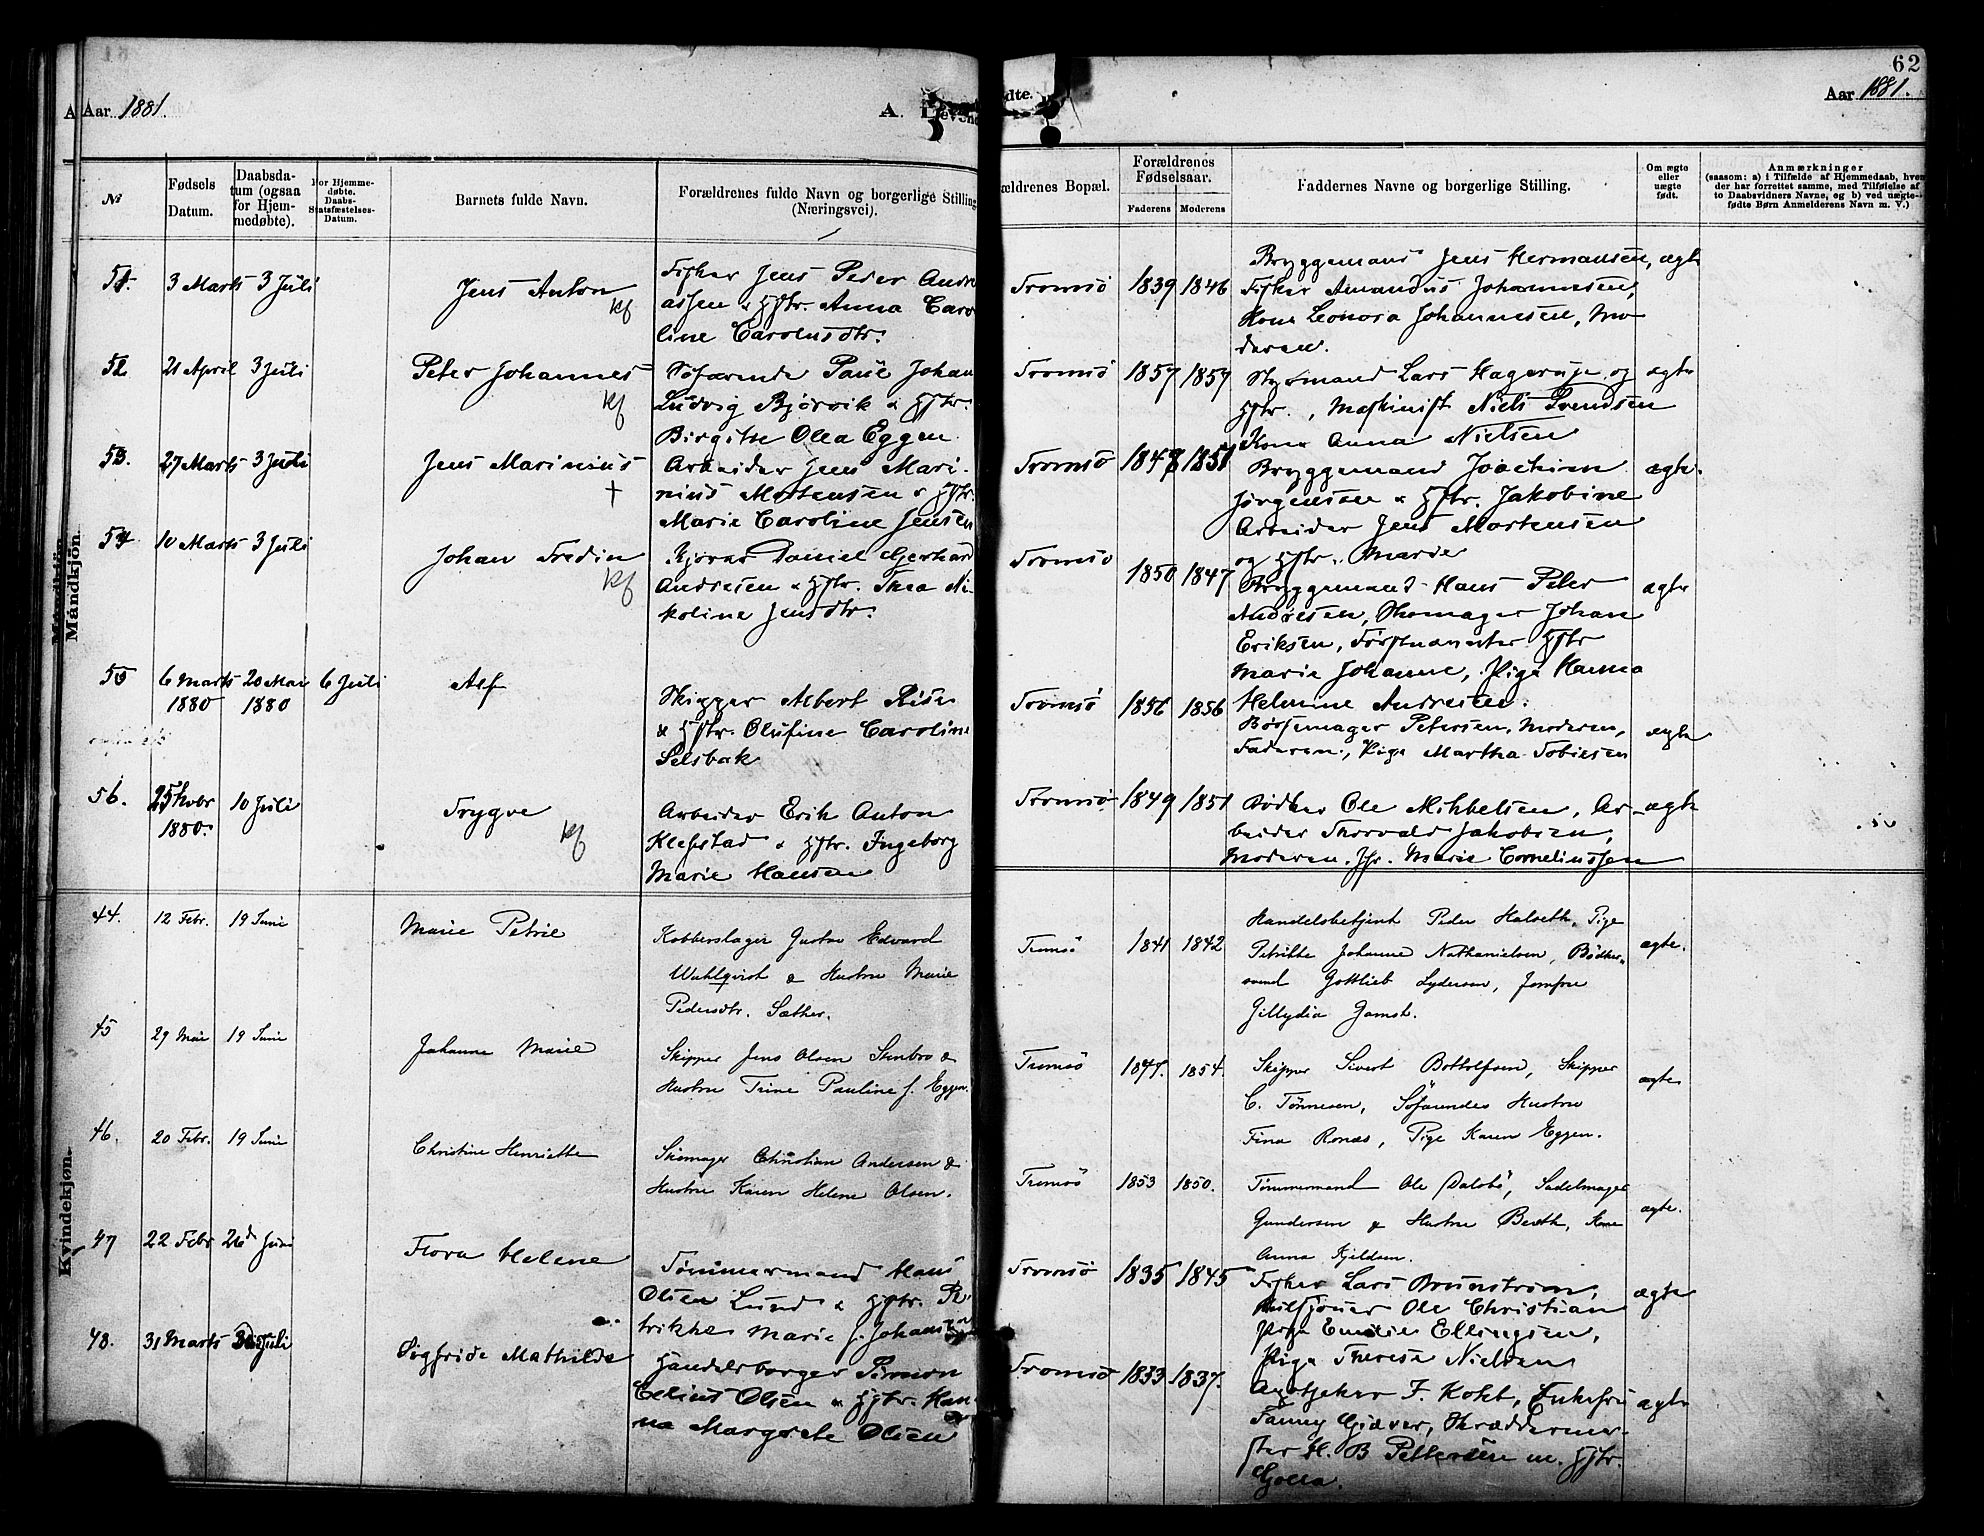 62
Aar 1881.
A. Levende
dte.
Aar 1881.
№
Fødsels Datum.
Daabsda-
tum (ogsaa
for Hjem-
medøbte).
For Hjemme-
døbte.
Daabs-
Statsfæstelses-
Datum.
Barnets fulde Navn.
Forældrenes fulde Navn og borgerlige Stilling
(Næringsvei).
ældrenes Bopæl.
Forældrenes
Fødselsaar.
Faderens
Moderens
Faddernes Navne og borgerlige Stilling.
Om ægte
eller
uægte
født.
Anmærkninger
(saasom: a) i Tilfælde af Hjemmedaab, hven
der har forrettet samme, med Tilføielse af
to Daabsvidners Navne, og b) ved uægte-
fødte Børn Anmelderens Navn m. V.)
Mandkjøn.
51. 3 Marts 3 Juli
Jens Anton
kf
Fisker Jens Peder Andre
assen & Hstr. Anna Caro
line Carolusdtr.
Tromsø 1839 1846
Bryggemand Jens Hermansen,
Fisker Amandus Johannesen,
Kone Leonora Johannesen, Mo-
deren.
ægte
52 21 April 3 Juli
Peter Johannes
kf
Søfarende Paul Johan
Ludvig Bjørvik & Hstr.
Birgitte Olea Eggen
Tromsø 1857 1857
Styrmand Lars Hagerup og
Hstr., Maskinist Niels Svendsen
Kone Anna Nielsen
ægte
53. 27 Marts 3 Juli
Jens Marinius
+
Arbeider Jens Mari-
nius Mortensen & Hstr.
Marie Caroline Jensen
Tromsø 1848 1851
Bryggemand Joachim
Jørgensen & Hstr. Jakobine
Arbeider Jens Mortensen
og Hstr. Marie
ægte.
54 10 Marts 3 Juli
Johan Fredin
kf
Daniel Gerhard
Andresen & Hstr. Thea Ni-
koline Jensdtr.
Tromsø 1850 1847
Bryggemand Hans Peter
Andresen, Skomager Johan
Eriksen, Hstr
Marie Johanne, Pige Hanna
Helmine Andresen.
ægte
55 6 Marts 1880 20 Mai 1880 6 Juli
Alf
Skipper Albert Riise
& Hstr. Olufine Caroline
Selsbak
Tromsø 1856 1856
Børsemager Petersen, Moderen,
Faderen, Pige Martha Tobiesen
ægte
56. 25 1880. 10 Juli
Trygve
kf
Arbeider Erik Anton
Klefstad & Hstr. Ingeborg
Marie Hansen
Tromsø 1849 1851
Bødker Ole Mikkelsen, Ar-
beider Thorvald Jakobsen,
Moderen, Jfr. Marie Corneliussen
ægte
Kvindekjøn.
44. 12 Febr. 19 Juni
Marie Petrie
Kobberslager Gustav Edvard
Wahlqvist & Hustru Marie
Pedersdtr. Sæther.
Tromsø 1841 1842
Handelsbetjent Peder Halseth, Pige
Petrikke Johanne Nathanielsen, Bødker-
svend Gottlieb Lydersen, Jomfru
Gillydia Gamst.
ægte.
45 29 Mai 19 Juni
Johanne Marie
Skipper Jens Olsen Stenbro &
Hustru Trine Pauline f. Eggen.
Tromsø 1847. 1854.
Skipper Sivert Bottolfsen, Skipper
C. Tønnesen, Søfarendes Hustru
Fina Ronæs, Pige Karen Eggen.
ægte
46. 20 Febr. 19 Juni
Christine Henriette
Skomager Christian Andersen &
Hustru Karen Helene Olsen.
Tromsø 1853 1850.
Tømmermand Ole Dalsbø, Sadelmager
Gundersen & Hustru Berth, Kone
Anna Kjeldsen.
ægte.
47 22 Febr 26 Juni
Flora Helene
Tømmermand Hans
Olsen Lund & Hstr. Pe-
trikke Marie f. Johansen
Tromsø 1835 1845
Fisker Lars Brunstrøm,
Ole Christian
Pige Emilie Ellingsen,
Pige Therese Nielsen
ægte
48. 31 Marts Juli
Sigfride Mathilde
Handelsborger Simon
Edvard Olsen & Hstr. Han-
na Margrete Olsen
Tromsø 1833 1837.
Apotheker F. Kokt, Enkefru
Fanny Gjæver, Skrædderme-
ster H. B Pettersen m. Hstr.
Golla.
ægte